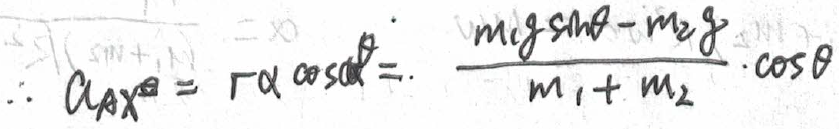 ∴ a_{Ax} = rα cosθ = \frac{m_1 g sinθ - m_2 g}{m_1 + m_2} · cosθ